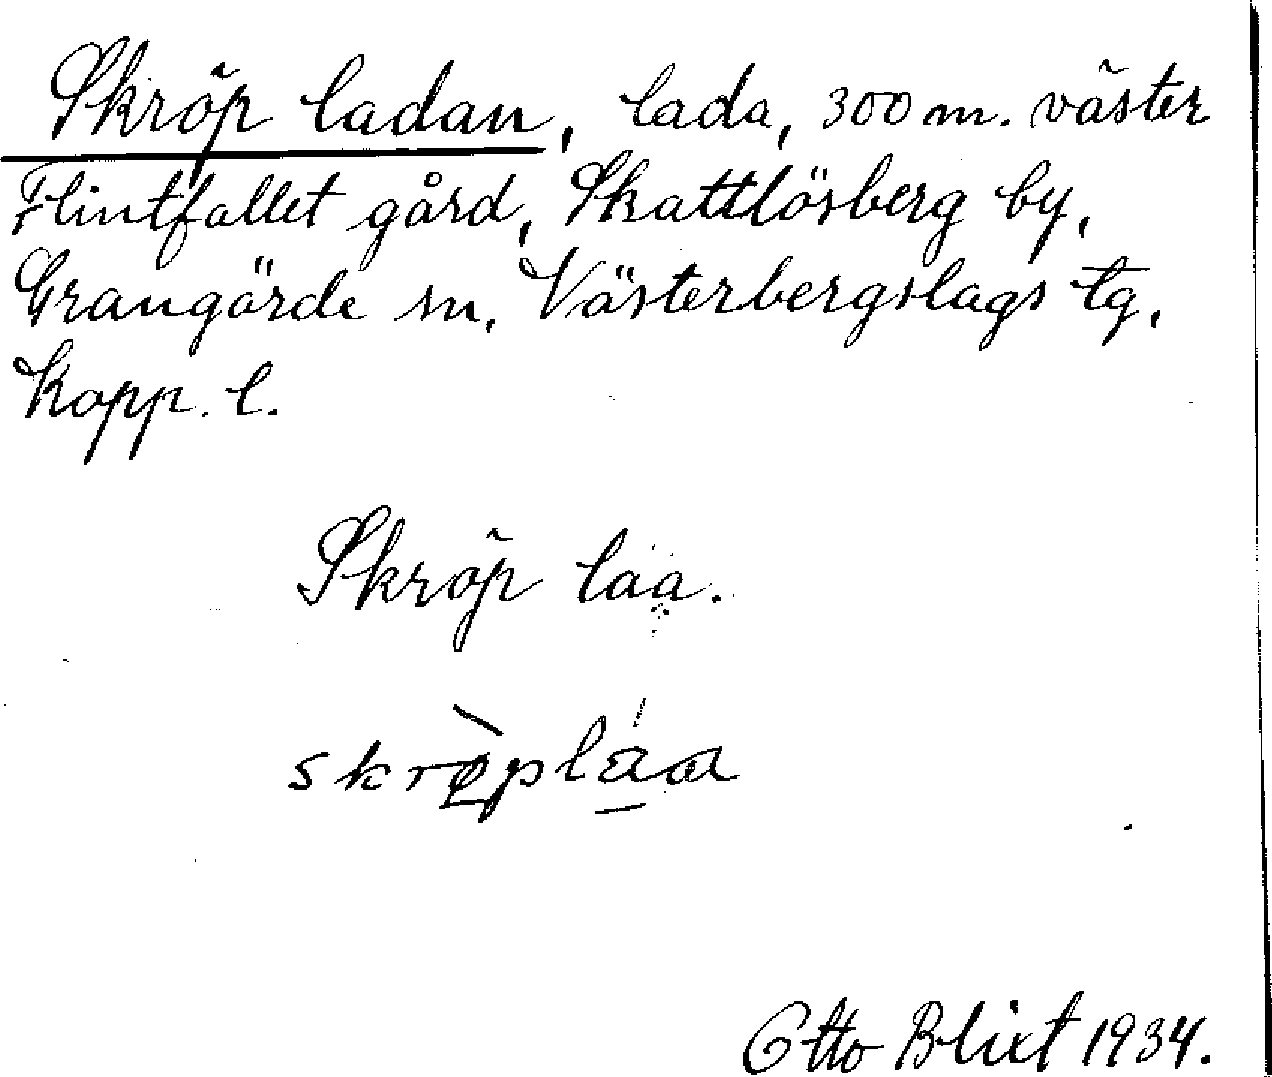 Skröp ladan, lada, 300 m. väster
Flintfallet gård, Skattlösberg by,
Grangärde sn, Västerbergslags tg,
Kopp. l.
Skröp laa.
Otto Blixt 1934.